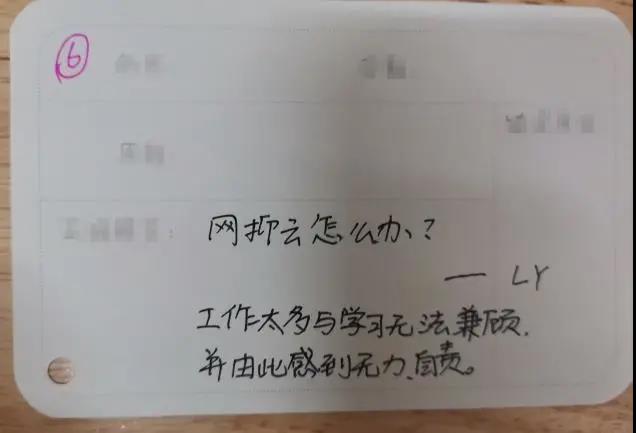 6
网抑云怎么办、?
— LY
工作太多与学习无法兼顾.
并由此感到无力、自责。